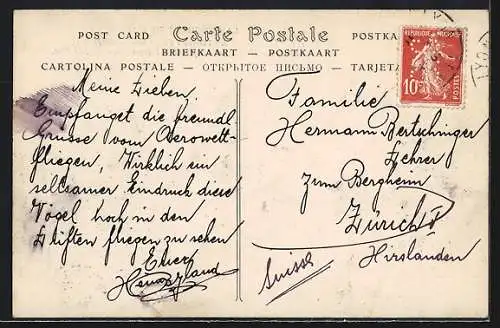 POST CARD Carte Postale POSTKA
BRIEFKAART — POSTKAART
CARTOLINA POSTALE — ОТКРЫТОЕ ПИСЬМО — TARJETA
REPUBLIQUE FRANÇAISE
10
POSTES
Meine Lieben.
Empfanget die freundl
Grüsse vom Aerowett-
fliegen, Wirklich ein
seltsamer Eindruck diese
Vögel hoch in den
Lüften fliegen zu sehen
Euer
Familie
Hermann Bertschinger
Lehrer
zum Bergheim
Zürich V
Hirslanden
Suisse